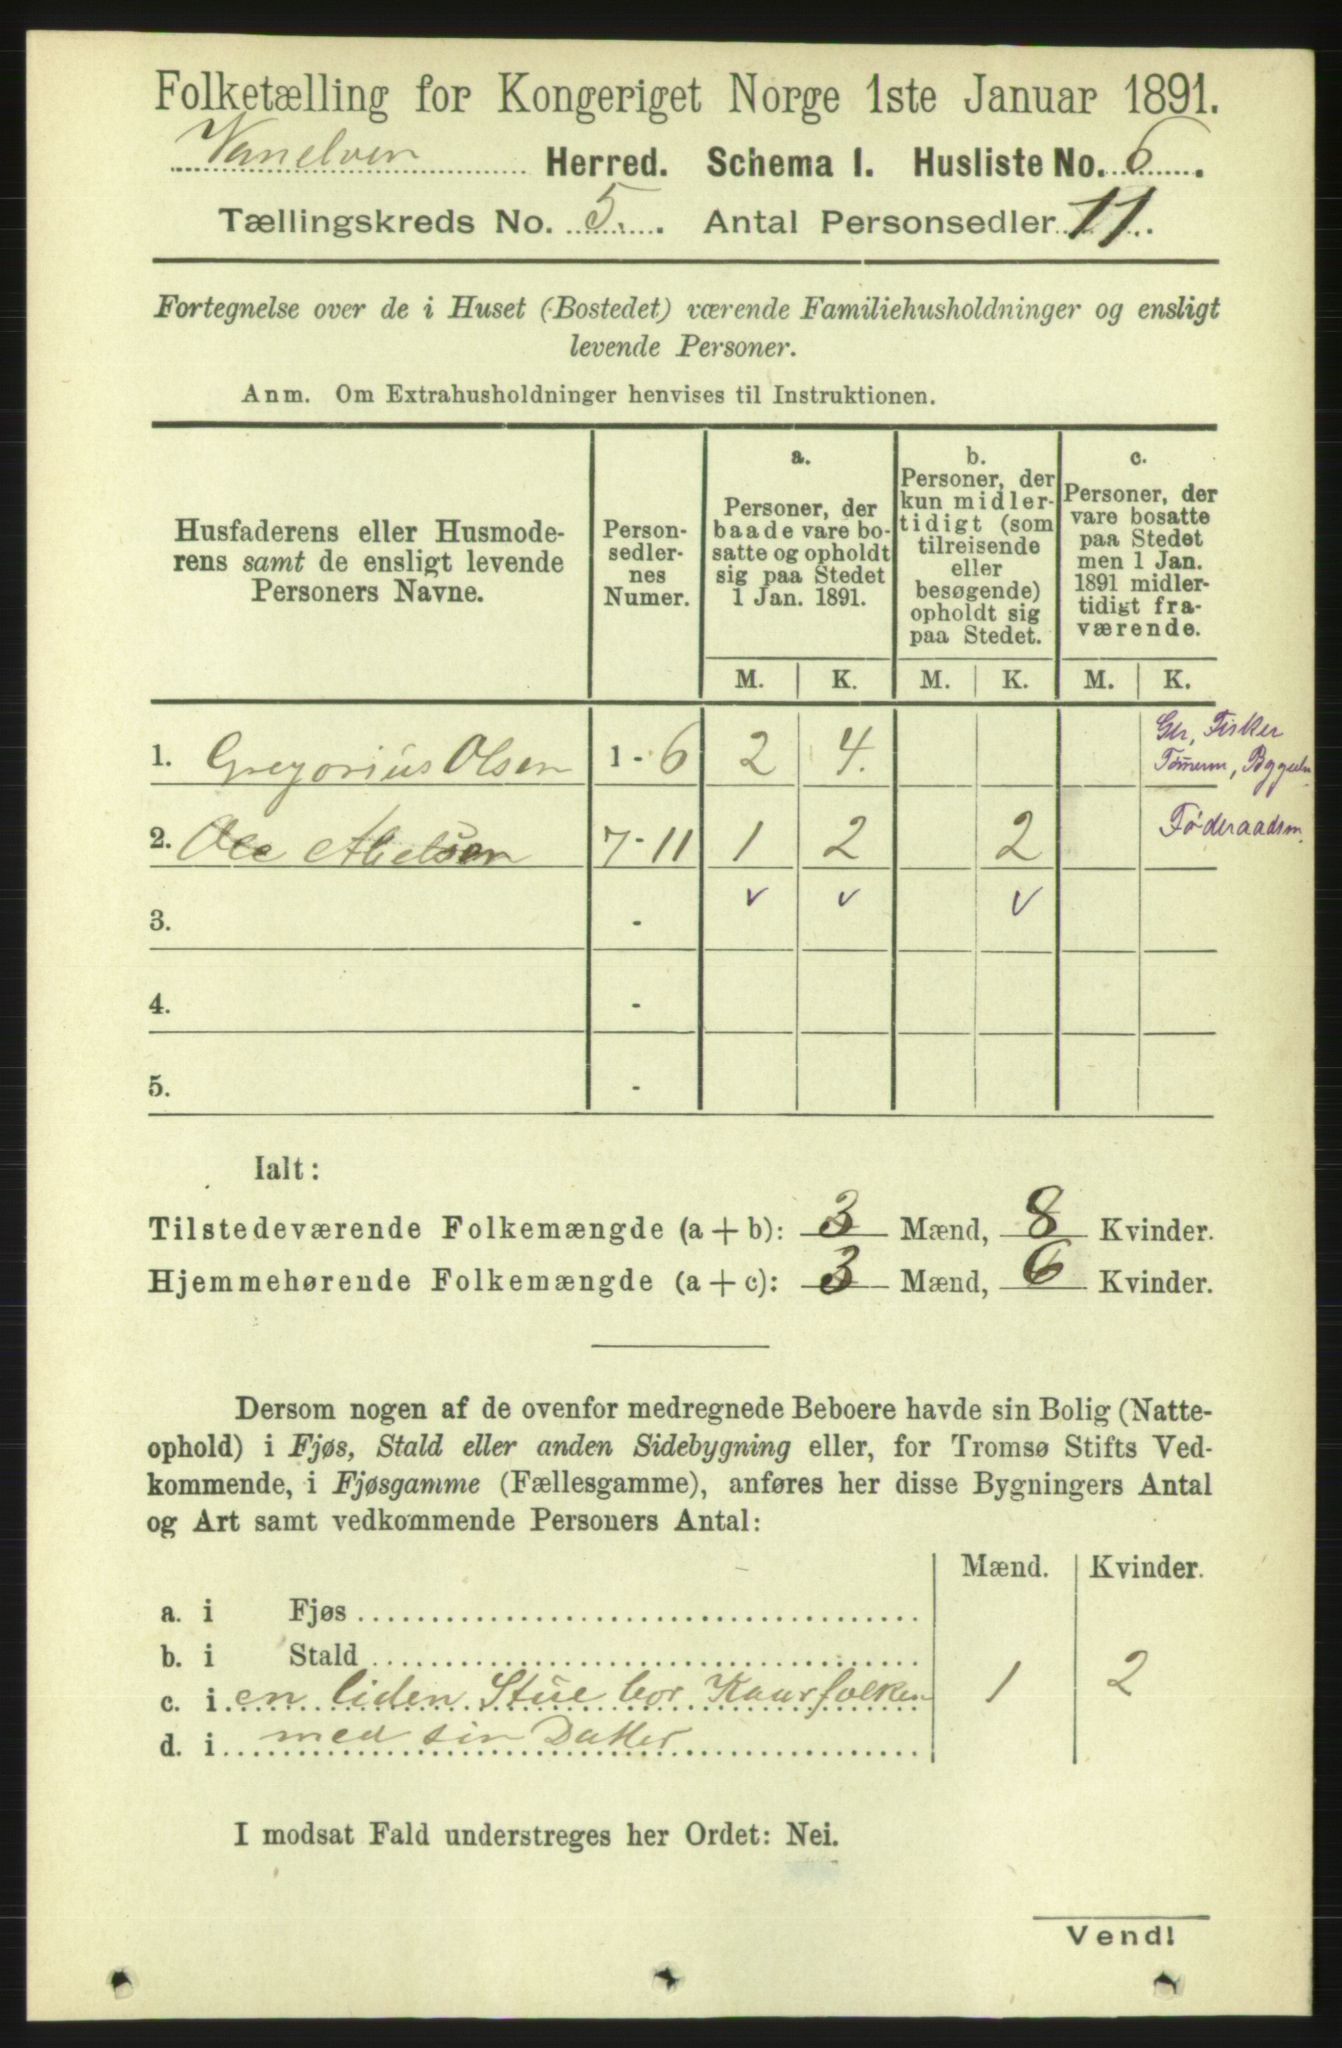 Folketælling for Kongeriget Norge 1ste Januar 1891.
Vanelven Herred. Schema I. Husliste No. 6.
Tællingskreds No. 5. Antal Personsedler 11.
Fortegnelse over de i Huset (Bostedet) værende Familiehusholdninger og ensligt
levende Personer.
Anm. Om Extrahusholdninger henvises til Instruktionen.
Husfaderens eller Husmode-
rens samt de ensligt levende
Personers Navne.
Person-
sedler-
nes
Numer.
a.
Personer, der
baade vare bo-
satte og opholdt
sig paa Stedet
1 Jan. 1891.
b.
Personer, der
kun midler-
tidigt (som
tilreisende
eller
besøgende)
opholdt sig
paa Stedet.
c.
Personer, der
vare bosatte
paa Stedet
men 1 Jan.
1891 midler-
tidigt fra-
værende.
M. K. M. K. M. K.
1. Gregorius Olsen 1 - 6 2 4. Gbr, Fisker
Tømerm, Byggeln
2. Ole Abelsen 7 - 11 1 2 2 Føderaadsm.
3. - v v v
4. -
5. -
Ialt:
Tilstedeværende Folkemængde (a + b): 3 Mænd, 8 Kvinder.
Hjemmehørende Folkemængde (a + c): 3 Mænd, 6 Kvinder.
Dersom nogen af de ovenfor medregnede Beboere havde sin Bolig (Natte-
ophold) i Fjøs, Stald eller anden Sidebygning eller, for Tromsø Stifts Ved-
kommende, i Fjøsgamme (Fællesgamme), anføres her disse Bygningers Antal
og Art samt vedkommende Personers Antal:
Mænd. Kvinder.
a. i Fjøs
b. i Stald
c. i en liden Stue bor Kaarfolken 1 2
d. i med sin Datter
I modsat Fald understreges her Ordet: Nei.
Vend!